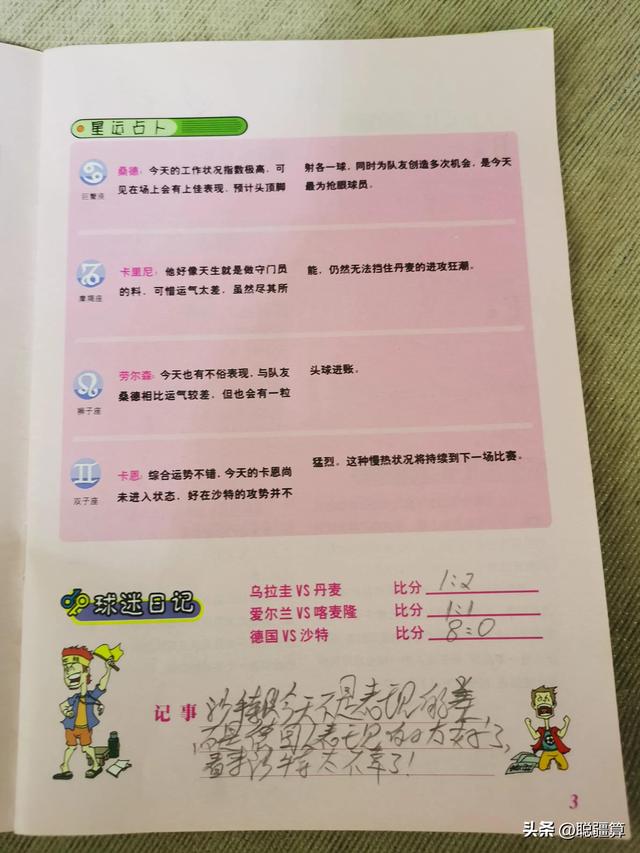 星运占卜
巨蟹座
桑德：今天的工作状况指数极高，可
见在场上会有上佳表现，预计头顶脚
射各一球，同时为队友创造多次机会，是今天
最为抢眼球员。
摩羯座
卡里尼：他好像天生就是做守门员
的料，可惜运气太差，虽然尽其所
能，仍然无法挡住丹麦的进攻狂潮。
狮子座
劳尔森：今天也有不俗表现，与队友
桑德相比运气较差，但也会有一粒
头球进账。
双子座
卡恩：综合运势不错，今天的卡恩尚
未进入状态，好在沙特的攻势并不
猛烈。这种慢热状况将持续到下一场比赛。
球迷日记
乌拉圭 VS 丹麦 比分 1:2
爱尔兰 VS 喀麦隆 比分 1:1
德国 VS 沙特 比分 8:0
记事 沙特队今天不是表现的差，
而是德国人表现的太好了，
看来沙特太不幸了！
3
头条 @聪疆算